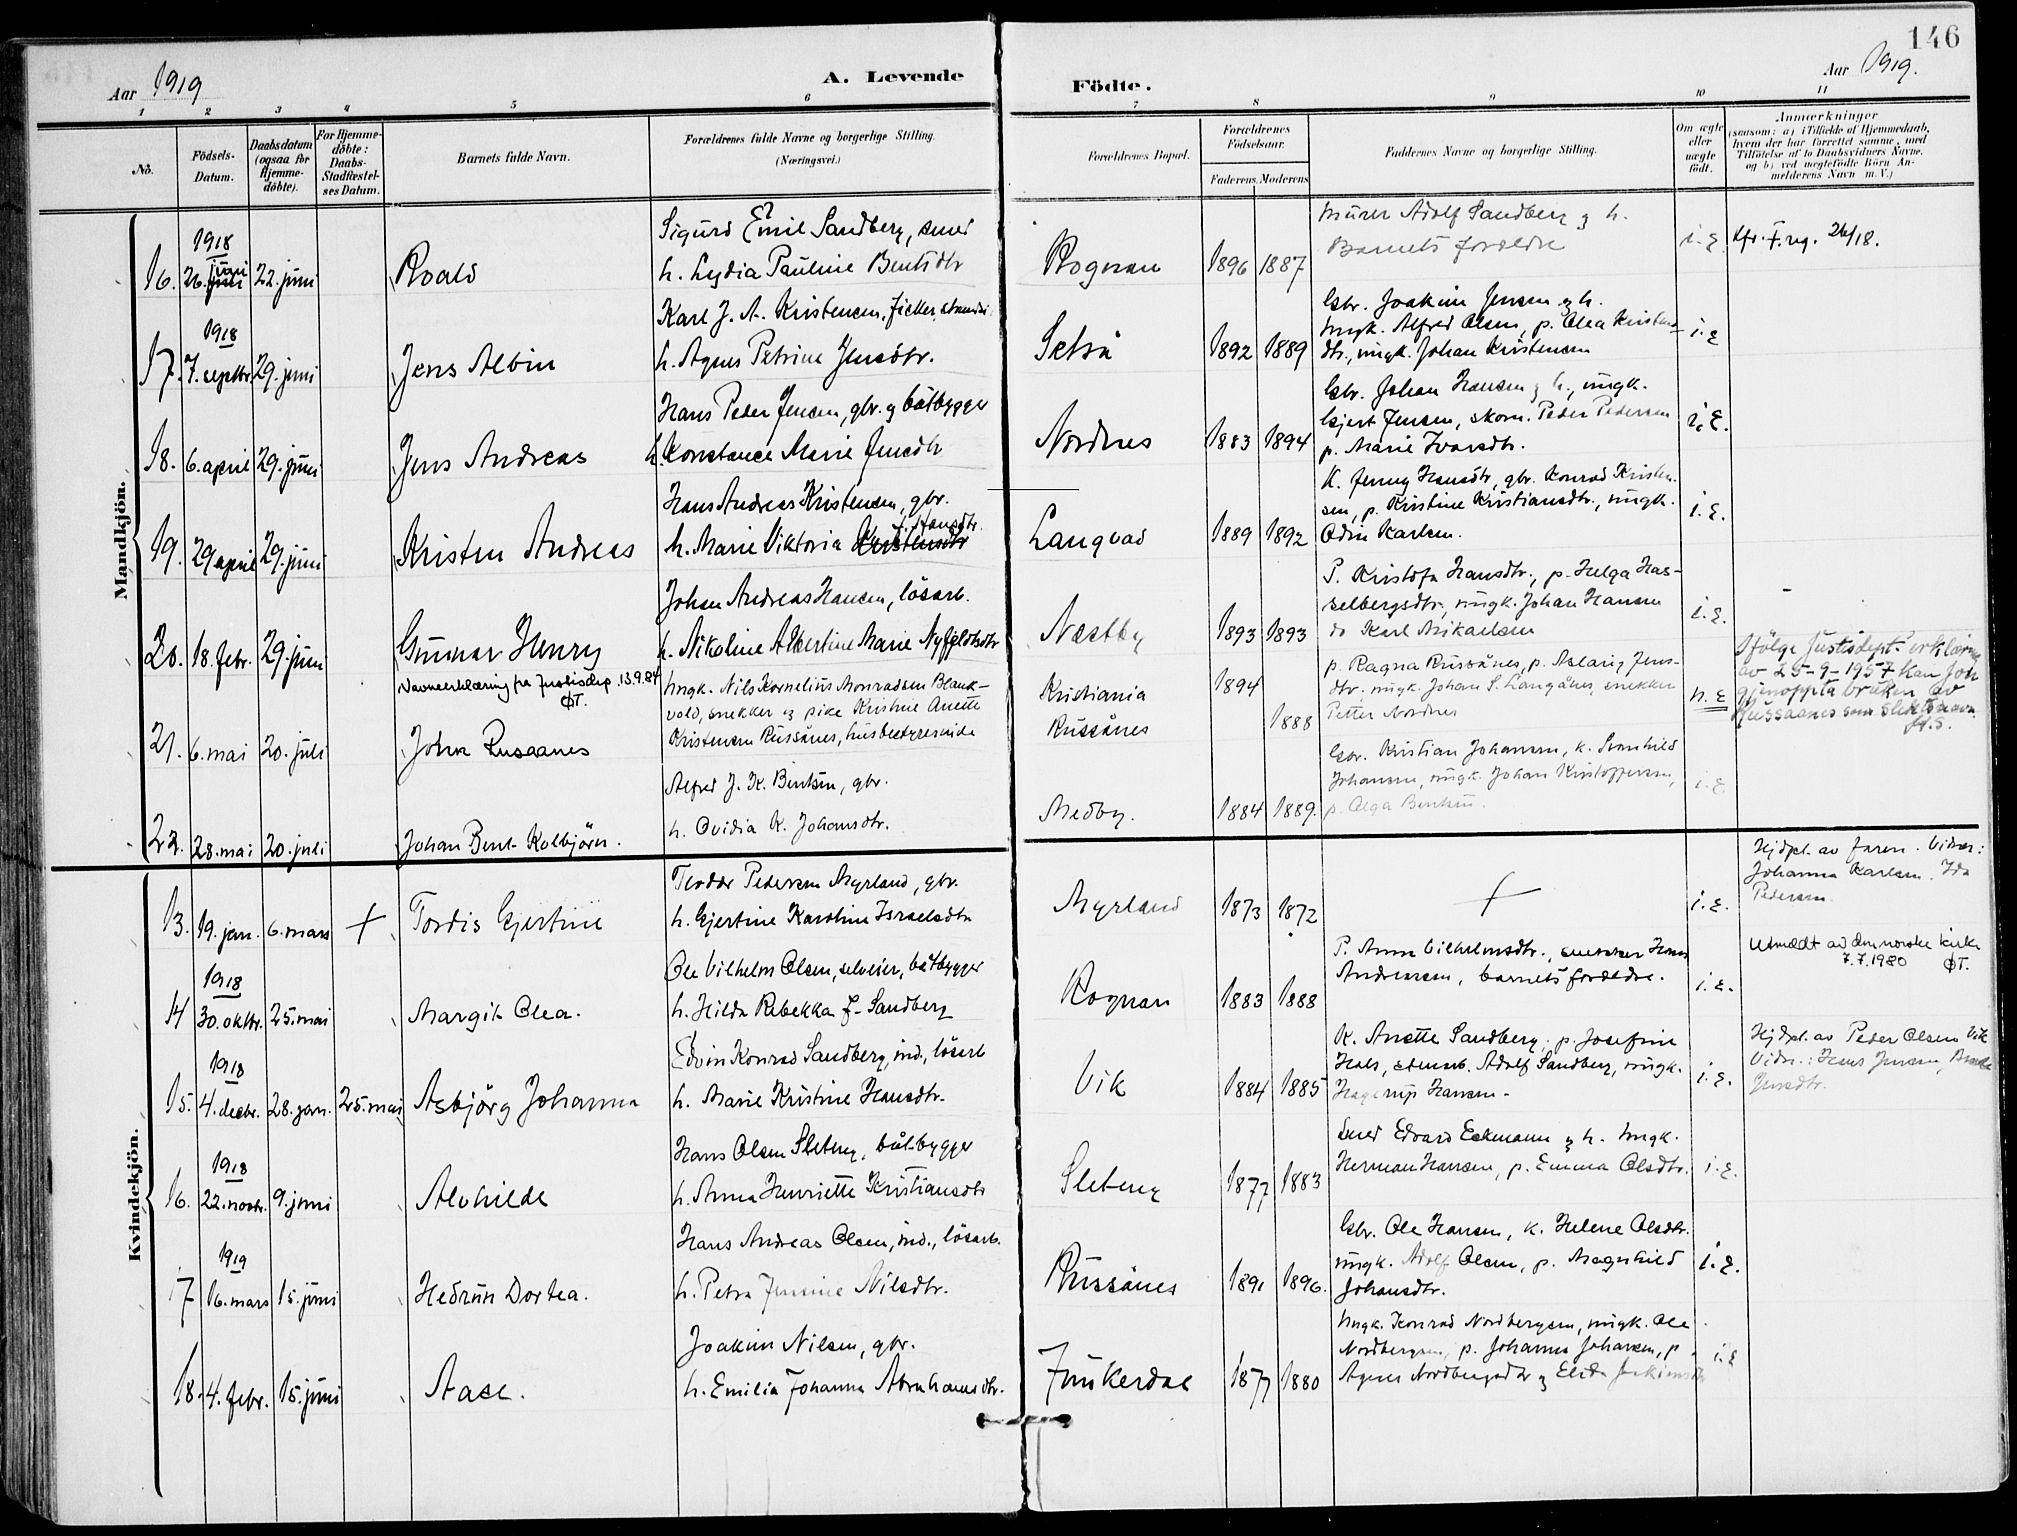 146
Aar 1919
A. Levende
Födte.
Aar 1919.
1 2 3 4 5 6 7 8 9 10 11
No.
Födsels-
Datum.
Daabsdatum
(ogsaa for
Hjemme-
döbte).
For Hjemme-
döbte:
Daabs-
Stadfæstel-
ses Datum.
Barnets fulde Navn.
Forældrenes fulde Navne og borgerlige Stilling.
(Næringsvei.)
Forældrenes Bopæl.
Forældrenes
Födselsaar.
Faderens. Moderens
Faddernes Navne og borgerlige Stilling.
Om ægte
eller
uægte
født.
Anmærkninger
(saasom: a) i Tilfælde af Hjemmedaab,
hvem der har forrettet samme, med
Tilføielse af to Daabsvidners Navne.
og b) ved uægtefödte Börn An-
melderens Navn m. V.)
Mandkjön.
1918
16. 26. juni 22. juni Roald
Sigurd Emil Sandberg, smed
h. Lydia Pauline Bentsdtr
Rognan 1896 1887
Murer Adolf Sandberg g h.
Barnets foreldre
i. E. Kfr. F. reg. 26/18.
1918
17. 7. septbr. 29. juni Jens Albin
Karl J. A. Kristensen, fisker,
h. Agnes Petrine Jensdtr.
Setså 1892 1889
Gbr. Joakim Jensen g h.
Ungk. Alfred Olsen, p. Olea Kristens-
dtr., ungk. Johan Kristensen
i. E
18. 6. april 29. juni Jens Andreas
Hans Peder Jensen, gbr. g båtbygger
h. Konstance Marie Jensdtr
Nordnes 1883 1894
Gbr. Johan Hansen g h., ungk.
Gjert Jensen, skom. Peder Pedersen
p. Marie Ivarsdtr.
i. E.
19. 29 april 29. juni Kristen Andreas
Hans Andreas Kristensen, gbr.
h. Marie Viktoria Hansdtr.
Langvad 1889 1892
K. Jenny Hansdtr, gbr. Konrad Kristen-
sen, p. Kristine Kristiansdtr., ungk.
Odin Karlsen.
i. E.
20. 18. febr. 29. juni Gunnar Henry
Johan Andreas Hansen, lösarb.
h. Nikoline Albertine Marie Nyfjeldsdtr
Næstby 1893 1893
P. Kristofa Hansdtr., p. Helga Has-
selbergsdtr., ungk. Johan Hansen
do Karl Mikaelsen
i. E.
Navneerklæring fra Justisdep. 13.9.84
ØT.
21. 6. mai 20. juli John Russaanes
Ungk. Nils Kornelius Monradsen Blank-
vold, snekker og pike Kristine Anette
Kristensen Russånes, husbestyrerinde
Kristiania 1894
Russånes 1888
p. Ragna Russånes, p. Aslaug Jens-
dtr. ungk. Johan S. Langånes, snekker
Petter Nordnes
u. E
Ifölge Justisdept.s erklæring
av 25-9-1957 kan John
gjenoppta bruken av
Russaanes som slektsnavn.
22. 28. mai 20. juli Johan Bent Kolbjörn.
Alfred J. K. Bentsen, gbr.
h. Ovidia K. Johansdtr.
Medby. 1884 1889.
Gbr. Kristian Johansen, k. Svanhild
Johansen, ungk. Johan Kristoffersen,
p. Olga Bentsen.
i. E.
Kvindekjön.
13. 19. jan. 6. mars + Tordis Gjertine
Teodor Pedersen Myrland, gbr.
h. Gjertine Karoline Israelsdtr
Myrland 1873 1872 + i. E.
Hjdpt. av faren. Vidner:
Johanna Karlsen. Ida
Pedersen.
1918
14 30. oktbr. 25. mai Margit Olea.
Ole Vilhelm Olsen, selveier, båtbygger
h. Hilda Rebekka f. Sandberg
Rognan 1883 1888
P. Anna Vilhelmsdtr., snekker Hans
Andreassen, barnets foreldre.
i. E.
Utmeldt av den norske kirke
7.7.1980 ØT.
1918
15. 4. decbr. 28. jan. 25. mai Asbjörg Johanna
Edvin Konrad Sandberg, ind., lösarb
h. Marie Kristine Hansdtr.
Vik 1884 1885
K. Anette Sandberg, p. Josefine
Hals, Adolf Sandberg, ungk.
Hagerup Hansen.
i. E.
Hjdpt. av Peder Olsen Vik
Vidn.: Hans Jensen,
Jensdtr.
1918
16. 22. novbr. 9. juni Alvhilde
Hans Olsen Sleteng, båtbygger
h. Anna Henriette Kristiansdtr
Sleteng 1877 1883
Smed Edvard Eckmann g h. Ungk.
Herman Hansen, p. Emma Olsdtr.
i. E.
1919
17 16. mars 15. juni Hedrun Dortea.
Hans Andreas Olsen, ind., lösarb.
h. Petra Jensine Nilsdtr.
Russånes 1891 1896.
Gbr. Ole Hansen, k. Helene Olsdtr.
ungk. Adolf Olsen, p. Magnhild
Johansdtr.
i. E.
18. 4. febr. 15. juni Aase.
Joakim Nilsen, gbr.
h. Emilia Johanna Abrahamsdtr.
Junkerdal 1877 1880
Ungk. Konrad Nordbergsen, ungk. Ole
Nordbergsen, p. Johanna Johansen, p
Agnes Nordbergsdtr g Elida
i. E